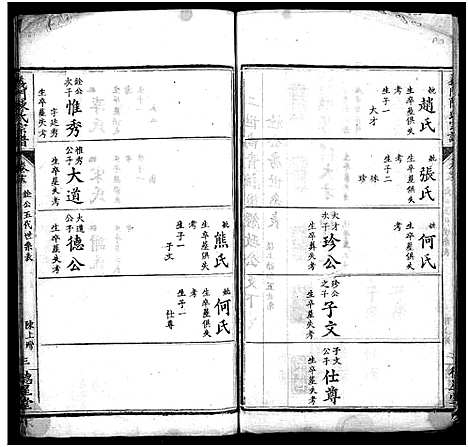 妣
趙氏
生卒墓俱失
考
生子一
大才
妣
張氏
生卒墓俱失
考
生子二
珍
妣
何氏
生卒墓俱失
考
大才
公子
珍公
生卒葬失考
珍公
之子
子文
生卒墓失考
子文
公子
仕尊
生卒墓失考
銓公
次子
惟秀
字廷秀
生卒墓失考
惟秀
公子
大道
生卒墓失考
大道
公子
德公
生卒墓失考
妣
熊氏
生卒墓俱失
考
生子一
子文
妣
何氏
生卒墓俱失
考
生子一
仕尊
義門陳氏宗譜
銓公五代世系表
陳上灣
三